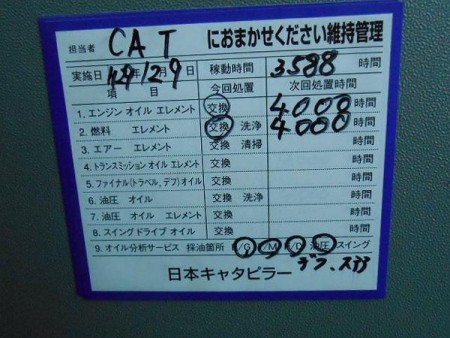 担当者 CAT におまかせください維持管理
実施日 年12月9日 稼動時間 3588 時間
項目 今回処置 次回処置時間
1.エンジン オイル エレメント 交換 4000 時間
2.燃料 エレメント 交換 洗浄 4000 時間
3.エアー エレメント 交換 清掃 時間
4.トランスミッション オイル エレメント 交換 時間
5.ファイナル(トラベル,デフ)オイル 交換 時間
6.油圧 オイル 交換 洗浄 時間
7.油圧 オイル エレメント 交換 時間
8.スイングドライブ オイル 交換 時間
9.オイル分析サービス 採油箇所 E/G T/M F/D 油圧 スイング
日本キャタピラー デフ、